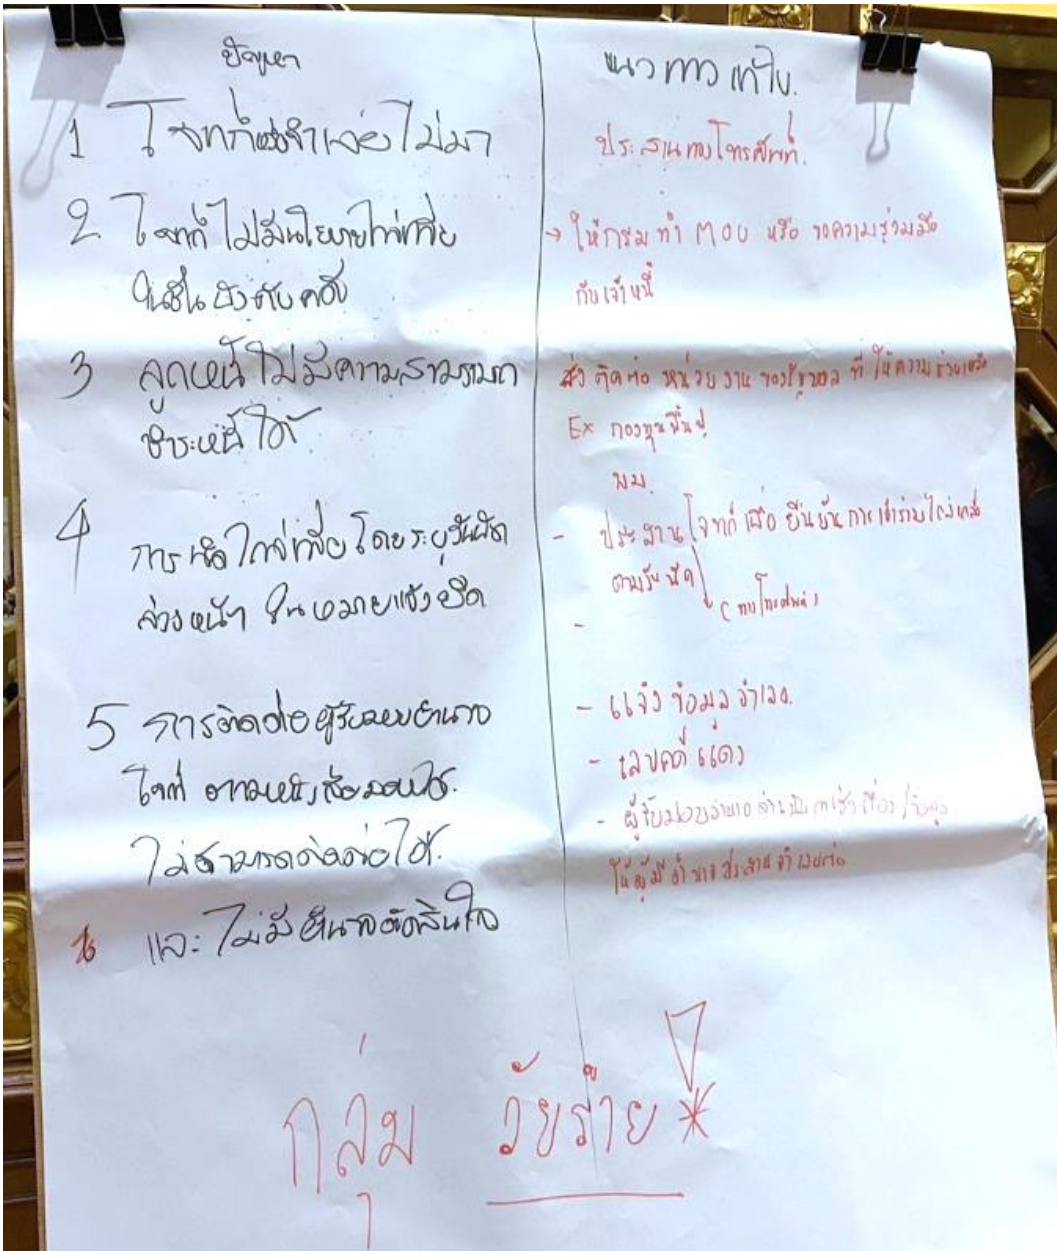 ปัญหา
1 โจทก์หรือจำเลยไม่มา
2. โจทก์ไม่มีนโยบายไกล่เกลี่ย
ในชั้นบังคับคดี
3 ลูกหนี้ไม่มีความสามารถ
ชำระหนี้ได้
4 การนัดไกล่เกลี่ยโดยระบุวันนัด
ล่วงหน้า ในหมายแจ้งยึด
5 การติดต่อผู้รับมอบอำนาจ
โจทก์ ตามหนังสือมอบได้.
ไม่สามารถติดต่อได้.
และ ไม่มีอำนาจตัดสินใจ
แนวทางแก้ไข.
ประสานทางโทรศัพท์.
→ ให้กรมทำ MOU หรือ ขอความร่วมมือ
กับเจ้าหนี้
ส่งต่อ หน่วยงานของรัฐบาล ที่ให้ความช่วยเหลือ
Ex กองทุนฟื้นฟู
พม.
- ประสานโจทก์เพื่อ ยืนยันการเข้าร่วมไกล่เกลี่ย
ตามวันนัด
(ทางโทรศัพท์)
-
- แจ้งข้อมูลจำเลย.
- เลขคดีแดง
- ผู้รับมอบอำนาจ
ให้ผู้มีอำนาจประสานจำเลยต่อ
กลุ่ม วัยร้าย *